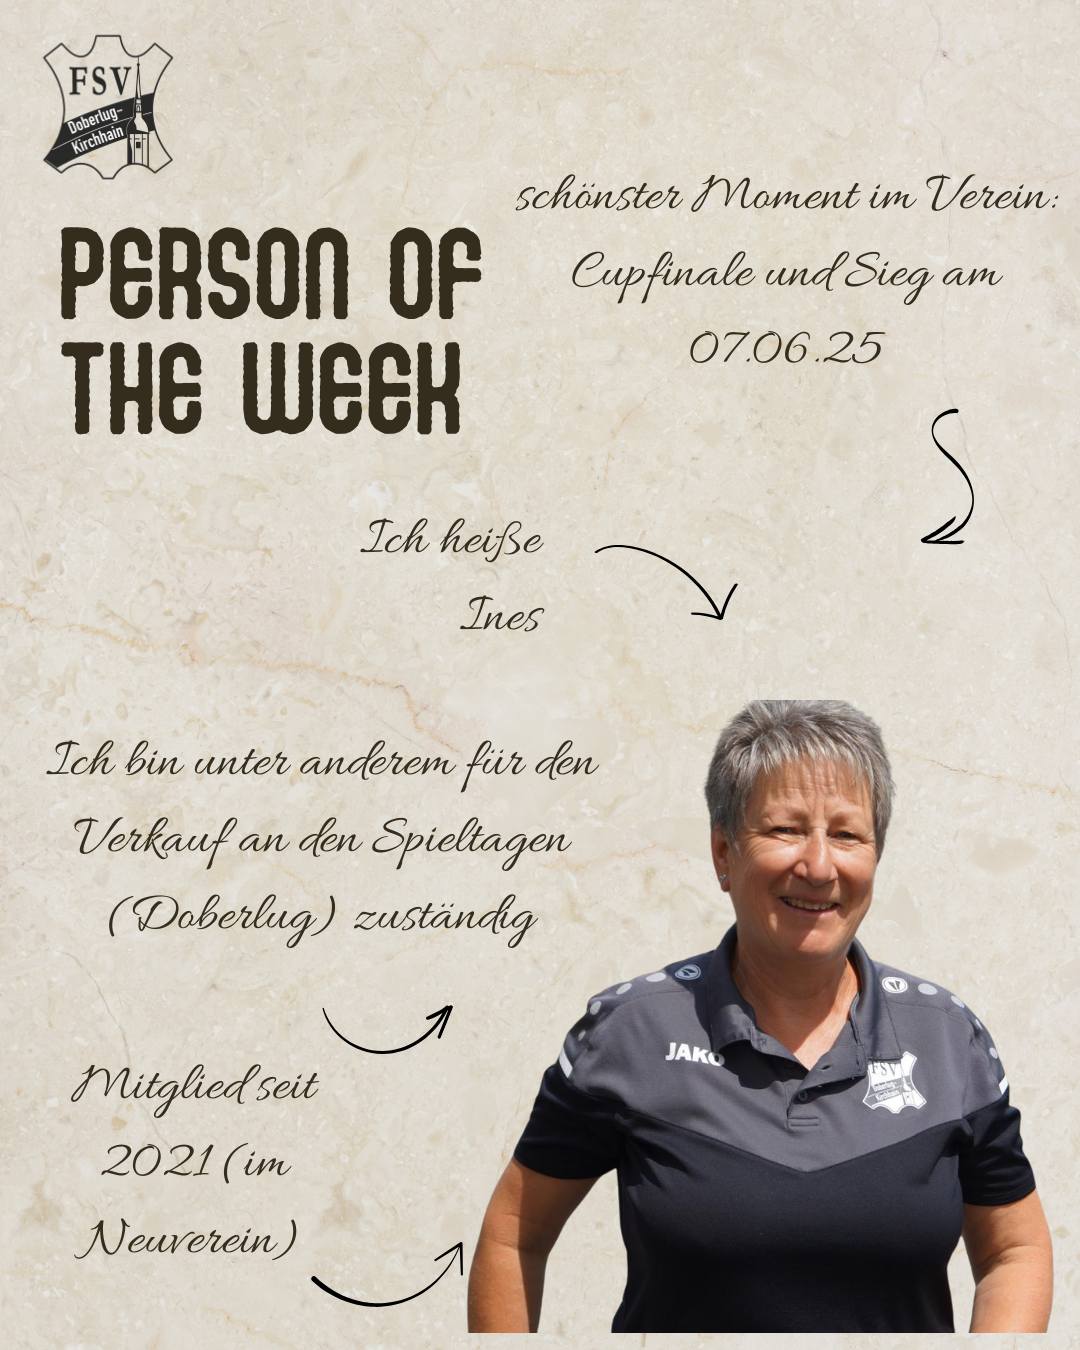 FSV
Doberlug-
Kirchhain
PERSON OF
THE WEEK
schönster Moment im Verein:
Cupfinale und Sieg am
07.06.25
Ich heiße
Ines
Ich bin unter anderem für den
Verkauf an den Spieltagen
(Doberlug) zuständig
Mitglied seit
2021 (im
Neuverein)
JAKO
FSV
Doberlug-
Kirchhain